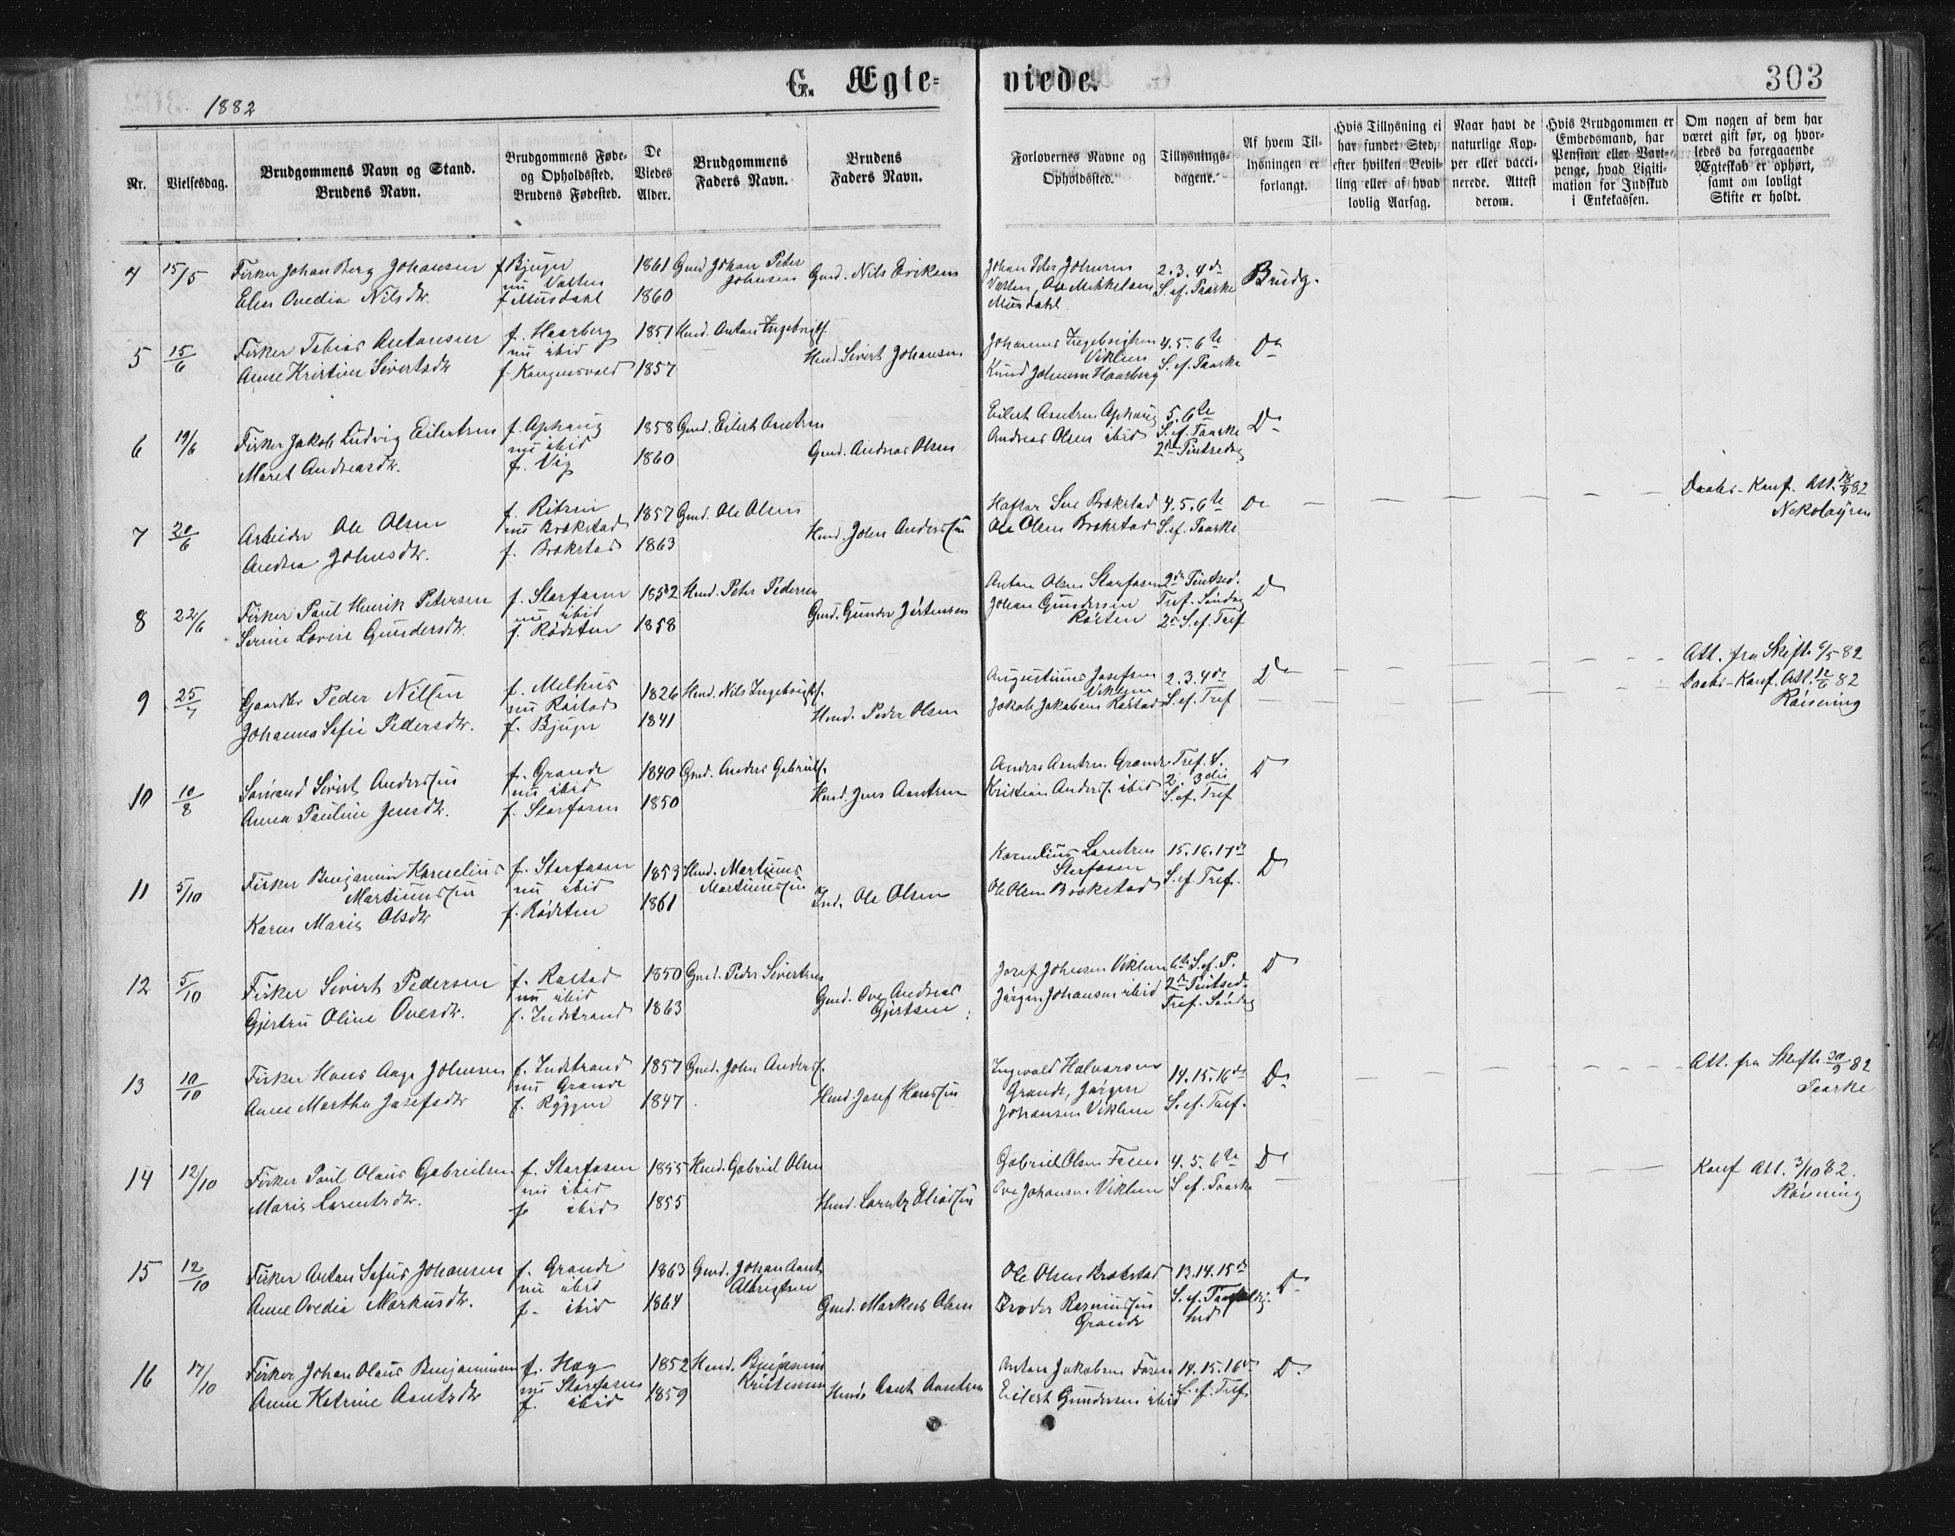 1882
G. Ægte-
viede.
303
Nr.
Vielsesdag.
Brudgommens Navn og Stand.
Brudens Navn.
Brudgommens Føde-
og Opholdssted.
Brudens Fødested.
De
Viedes
Alder.
Brudgommens
Faders Navn.
Brudens
Faders Navn.
Forlovernes Navne og
Opholdssted.
Tillysnings-
dagene.
Af hvem Til-
lysningen er
forlangt.
Hvis Tillysning ei
har fundet Sted,
efter hvilken Bevil-
ling eller af hvad
lovlig Aarsag.
Naar havt de
naturlige Kop-
per eller vacci-
nerede. Attest
derom.
Hvis Brudgommen er
Embedsmand, har
Pension eller Vart-
penge, hvad Ligiti-
mation for Indskud
i Enkekassen.
Om nogen af dem har
været gift før, og hvor-
ledes da foregaaende
Ægteskab er ophørt,
samt om lovligt
Skifte er holdt.
4 15/5 Fisker Johan Berg Johansen
Elen Ovedia Nilsdtr.
f. Bjugn
nu Valten
f. Musdahl
1861
1860
Gmd Johan Peter
Johnsen
Gmd. Nils Eriksen
Johan Peter Johnsen
Valten, Ole Mikkelsen
Musdahl
2. 3. 4de
S. ef. Paaske
Brudg.
5 15/6 Fisker Tobias Antonsen
Anne Kristine Sivertsdtr
f. Haarberg
nu ibid
f. Kongensvold
1851
1857
Hmd. Anton Ingebrigts.
Hmd. Sivert Johansen
Johannes Ingebrigtsen
Viklem
Knud Johnsen Haarberg
4. 5. 6te
S. ef. Paaske
Do
6 19/6 Fisker Jakob Ludvig Eilertsen
Maret Andreasdtr.
f. Ophaug
nu ibid
f. Vig
1858
1860
Gmd. Eilert Arntsen
Gmd. Andreas Olsen
Eilert Arntsen Ophaug
Andreas Olsen ibid
5. 6te
S. ef. Paaske
2den Pintsedag
Do
7 20/6 Arbeider Ole Olsen
Andrea Johnsdtr.
nu Brækstad
f. Brækstad
1857
1863
Gmd. Ole Olsen
Hmd. John Andersen
Brækstad
Ole Olsen Brækstad
4. 5. 6te
S. ef. Paaske
Do
Daabs-Konf. Att. 82
8 22/6 Fisker Paul Henrik Petersen
Gundersdtr.
f. Storfosen
nu ibid
f. Rødsten
1852
1858
Hmd. Peter Pedersen
Gmd. Gunder Jørtensen
Anton Olsen Storfosen
Johan Gundersen
2den Pintsed.
Tref. Søndag
2. S. ef. Tref
Do
9 25/7 Gaardbr Peder Nilsen
Johanna Sofie Pedersdtr.
f. Melhus
nu Røstad
f. Bjugn
1826
1841
Hmd. Nils Ingebrigts.
Hmd. Peder Olsen
Augustinus Josefsen
Viklem
Jakob Jakobsen Røstad
2. 3. 4de
S. ef. Tref
Do
Att. fra Skift. 6/5 82
Daabs-Konf. Att. 12/6 82
Røisning
10 10/8 Sivert Andersen
Anna Pauline Jensdtr.
f. Grande
nu ibid
f. Storfosen
1840
1850
Gmd. Anders Gabriels.
Hmd. Jens Arntsen
Anders Arntsen Grande
Kristian Anders. ibid
Tref. S.
2. 3die
S. ef. Tref
Do
11 5/10 Fisker Benjamin Kornelius
Martinussen
Karen Marie Olsdtr
f. Storfosen
nu ibid
f. Rødsten
1853
1861
Hmd. Martinus
Martinussen
Ind. Ole Olsen
Kornelius Lorentsen
Storfosen
Ole Olsen Brækstad
15. 16. 17de
S. ef. Tref.
Do
12 5/10 Fisker Sivert Pedersen
Gjertru Oline Ovesdtr.
f. Røstad
nu ibid
f. Indstrand
1850
1863
Gmd. Peder Sivertsen
Gmd. Ove Andreas
Gjertsen
Josef Johnsen Viklem
Jørgen Johansen ibid
6te S. ef. P.
2den Pintsed.
Tref. Søndag
Do
13 10/10 Fisker Hans Aage Johnsen
Anne Martha Josefsdtr
f. Indstrand
nu Grande
f. Ryggen
1857
1847
Gmd. John Anders.
Hmd. Josef Hanssen
Ingvald Halvorsen
Grande, Jørgen
Johansen Viklem
14. 15. 16de
S. ef. Tref.
Do
Att. fra Skift. 30/9 82
14 12/10 Fisker Paul Olaus Gabrielsen
Marie Lorentsdtr.
f. Storfosen
nu ibid
f. ibid
1855
1855
Hmd. Gabriel Olsen
Hmd. Lorntz Eliassen
Gabriel Olsen Fosen
Ove Johansen Viklem
4. 5. 6te
S. ef. Paaske
Do
Konf Att. 3/10 82.
Røisning
15 12/10 Fisker Anton Sefus Johansen
Anne Ovedia Markusdtr.
f. Grande
nu ibid
f. ibid
1863
1864
Gmd. Johan Arnt
Albrigtsen
Gmd. Markus Olsen
Ole Olsen Brækstad
Broder Rasmussen
Grande
13. 14. 15de
S. ef. Treefoldig-
hed
Do
16 17/10 Fisker Johan Olaus Benjaminsen
Anne Katrine Arntsdtr
f. Hoy
nu Storfosen
f. ibid
1852
1859
Hmd. Benjamin
Kristensen
Hmd. Arnt Arntsen
Anton Jakobsen Fosen
Eilert Gundersen ibid
14. 15. 16de
S. ef. Tref.
Do